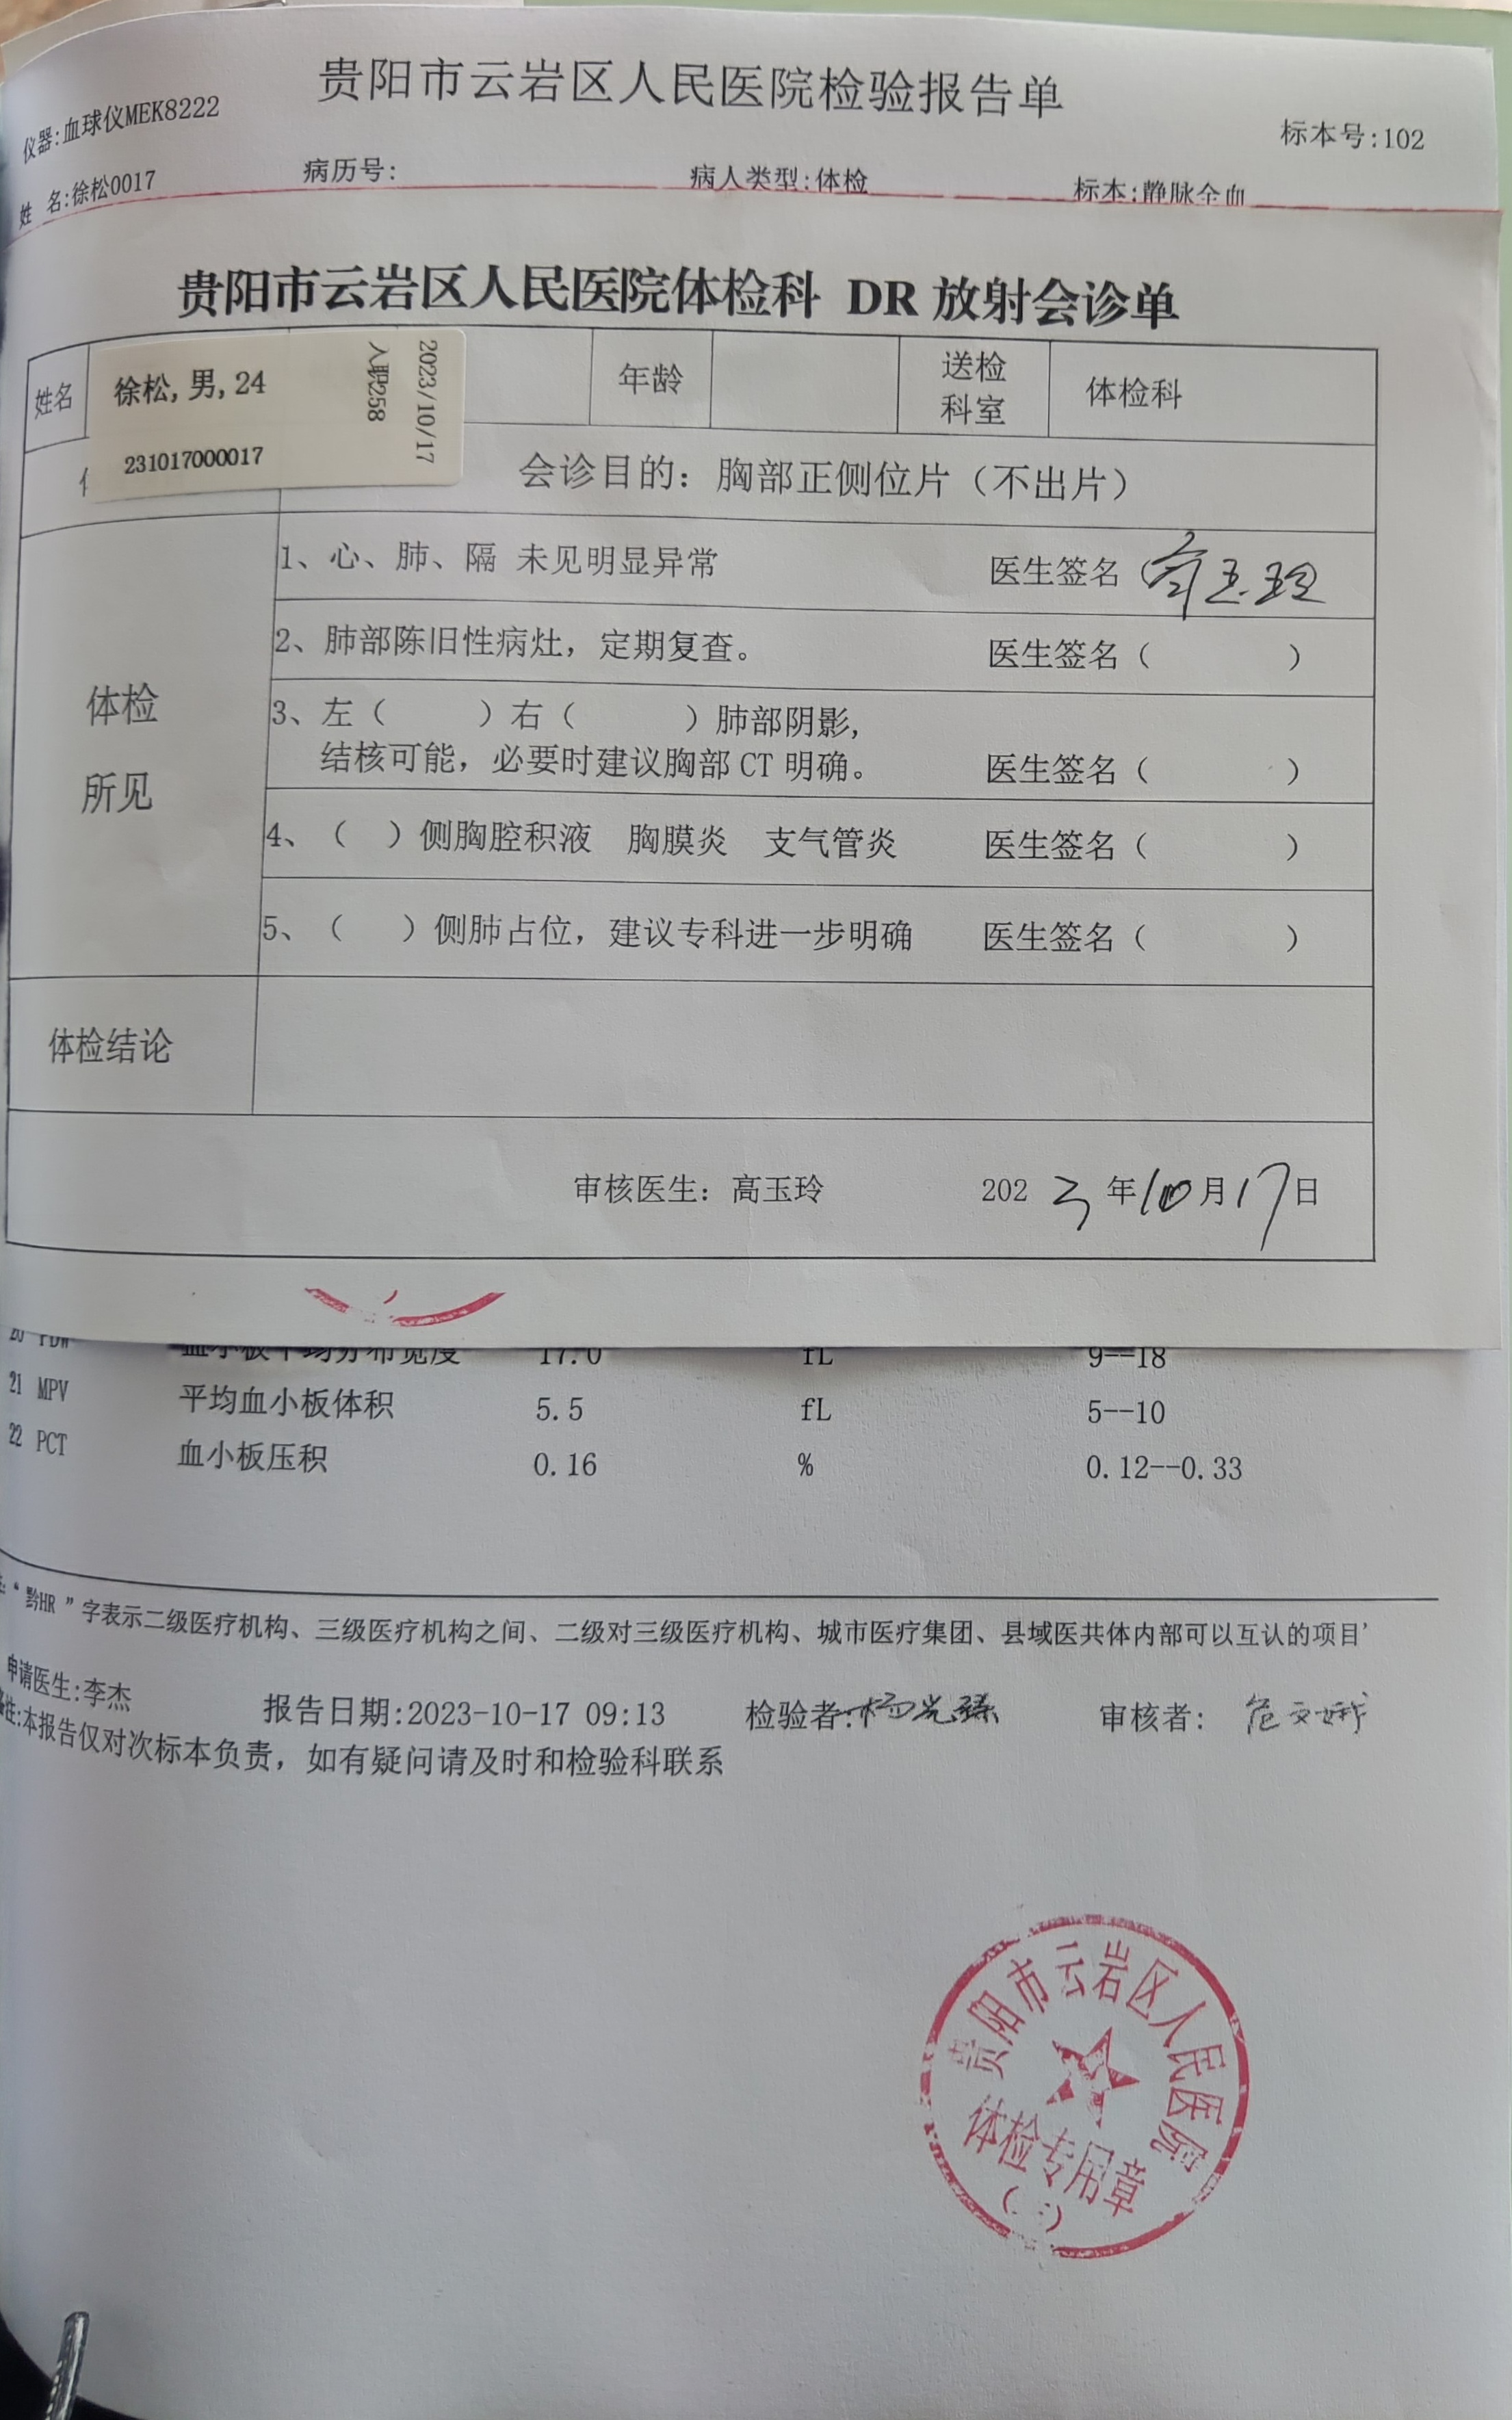 贵阳市云岩区人民医院检验报告单
仪器:血球仪MEK8222
标本号:102
姓 名:徐松0017 病历号: 病人类型:体检 标本:静脉全血
贵阳市云岩区人民医院体检科 DR 放射会诊单
姓名 年龄 送检科室 体检科
徐松,男,24
231017000017
入职258
2023/10/17
会诊目的：胸部正侧位片（不出片）
体检所见
1、心、肺、隔 未见明显异常 医生签名 高玉玲
2、肺部陈旧性病灶，定期复查。 医生签名（ ）
3、左（ ）右（ ）肺部阴影，
结核可能，必要时建议胸部 CT 明确。 医生签名（ ）
4、（ ）侧胸腔积液 胸膜炎 支气管炎 医生签名（ ）
5、（ ）侧肺占位，建议专科进一步明确 医生签名（ ）
体检结论
审核医生：高玉玲 2023年10月17日
20 PDW 血小板平均分布宽度 17.0 fL 9--18
21 MPV 平均血小板体积 5.5 fL 5--10
22 PCT 血小板压积 0.16 % 0.12--0.33
“ 黔HR ” 字表示二级医疗机构、三级医疗机构之间、二级对三级医疗机构、城市医疗集团、县域医共体内部可以互认的项目'
申请医生:李杰 报告日期:2023-10-17 09:13 检验者: 审核者:
备注:本报告仅对次标本负责，如有疑问请及时和检验科联系
贵阳市云岩区人民医院
体检专用章